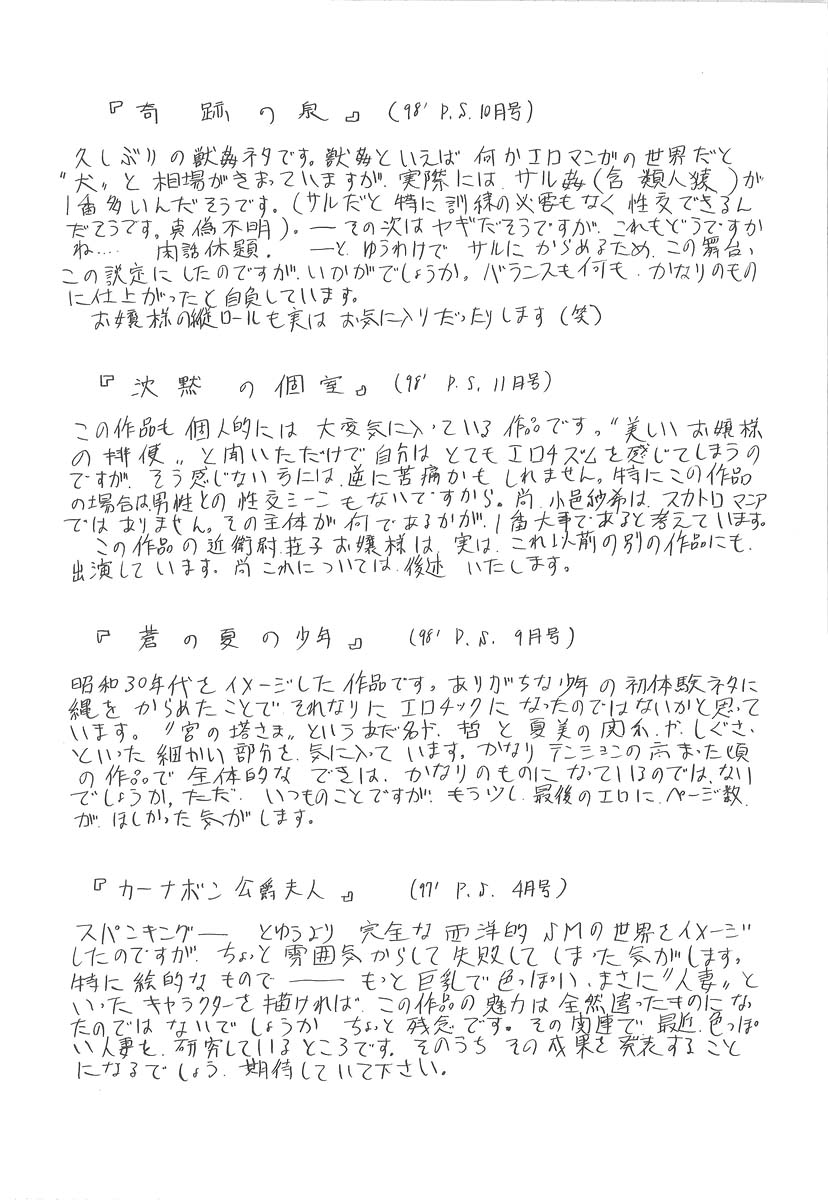 『奇跡の泉』 (98' P.S.10月号)
久しぶりの獣姦ネタです。獣姦といえば 何かエロマンガの世界だと
"犬"と相場がきまっていますが、実際には、サル姦(含 類人猿)が
1番多いんだそうです。(サルだと特に訓練の必要もなく性交できるん
だそうです。真偽不明)。― その次はヤギだそうですが、これもどうですか
ね…. 閑話休題. ―と、ゆうわけで サルに からめるため、この舞台、
この設定にしたのですが、いかがでしょうか。バランスも何も、かなりのもの
に仕上がったと自負しています。
お嬢様の縦ロールも実は お気に入りだったりします(笑)
『沈黙の個室』 (98' P.S. 11月号)
この作品も 個人的には 大変気に入っている作品です。"美しいお嬢様
の排便"と聞いただけで自分は とてもエロチズムを感じてしまうの
ですが、そう感じない方には、逆に苦痛かもしれません。特にこの作品
の場合は、男性との性交シーンもないですから。尚、小邑紗希は、スカトロマニア
ではありません。その主体が何であるかが、1番大事であると考えています。
この作品の近衛尉荘子お嬢様は、実は、これ以前の別の作品にも、
出演しています。尚これについては、後述 いたします。
『蒼の夏の少年』 (98' P.S. 9月号)
昭和30年代をイメージした作品です。ありがちな少年の初体験ネタに
縄をからめたことで それなりにエロチックになったのではないかと思って
います。"宮の塔さま"というあだ名や、哲と夏美の関係、や、しぐさ、
といった細かい部分を、気に入って います。かなりテンションの高まった頃
の作品で 全体的な できは、かなりのものになっているのでは、ない
でしょうか。ただ、いつものことですが、もう少し、最後のエロに、ページ数、
が、ほしかった気がします。
『カーナボン公爵夫人』 (97' P.S. 4月号)
スパンキング― とゆうより 完全な西洋的SMの世界をイメージ
したのですが、ちょっと雰囲気からして失敗してしまった気がします。
特に絵的なもので ―― もっと巨乳で色っぽい、まさに"人妻"と
いったキャラクターを描ければ、この作品の魅力は全然違ったものにな
たのではないでしょうか ちょっと残念です。その関連で、最近、色っぽ
い人妻を、研究しているところです。そのうち その成果を発表すること
になるでしょう、期待していて下さい。